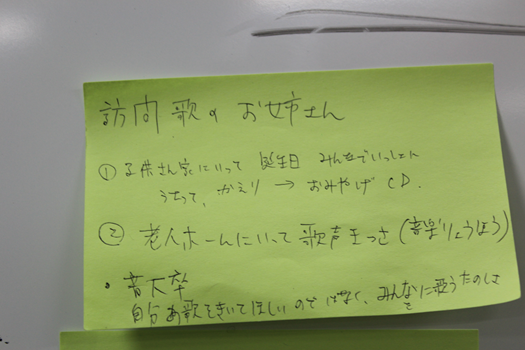 訪問歌のお姉さん
① 子供さん家にいって 誕生日 みんなでいっしょに
うたって、かえり → おみやげ CD.
② 老人ホームにいって歌声きっさ (音楽りょうほう)
• 音大卒
自分の歌をきいてほしいのではなく、みんなで歌うたのしさ